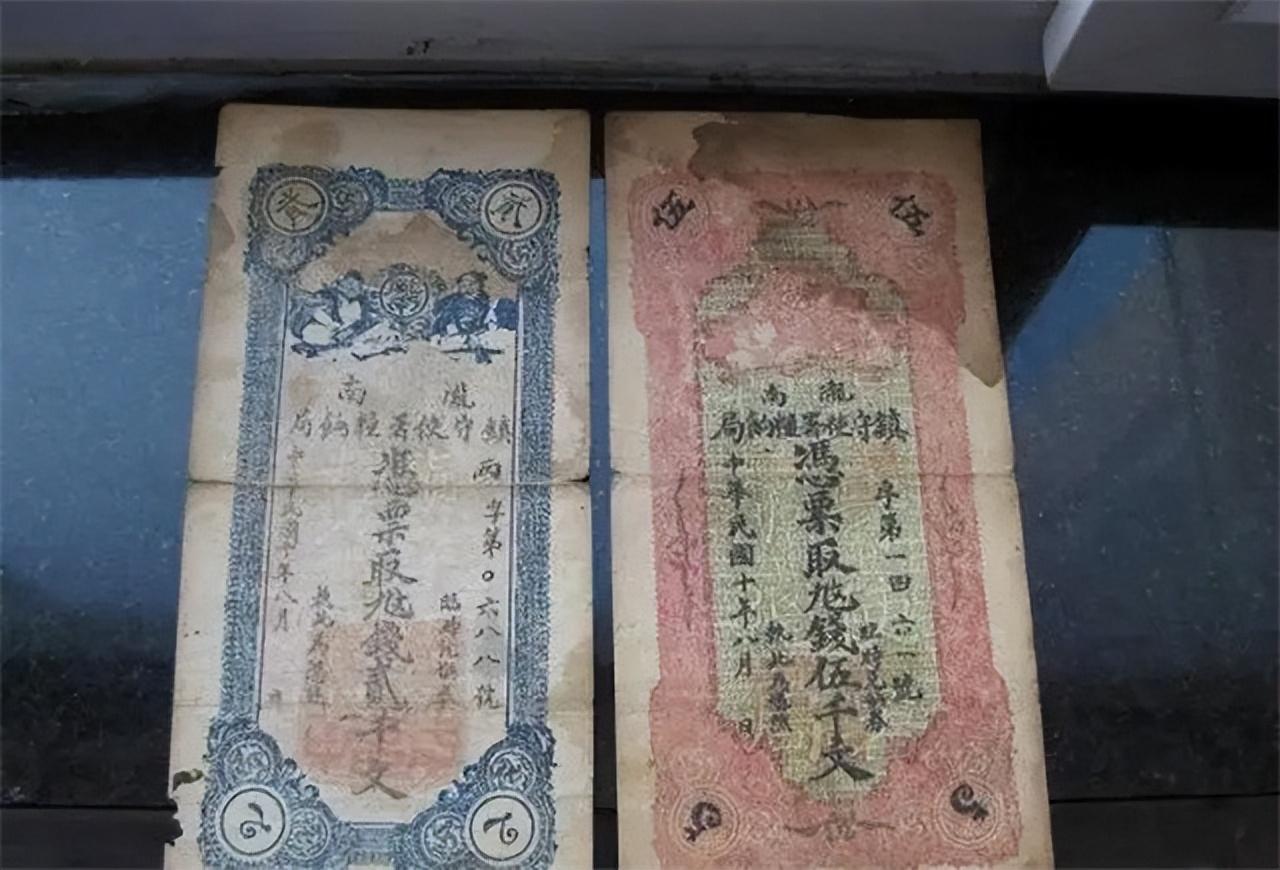 隴南
鎮守使署糧餉局
兩字第〇六八八號
憑票取兌錢貳千文
中華民國十年八月 日
伍 伍
隴南
鎮守使署糧餉局
字第一四六一號
憑票取兌錢伍千文
執此為憑照
中華民國十年八月 日